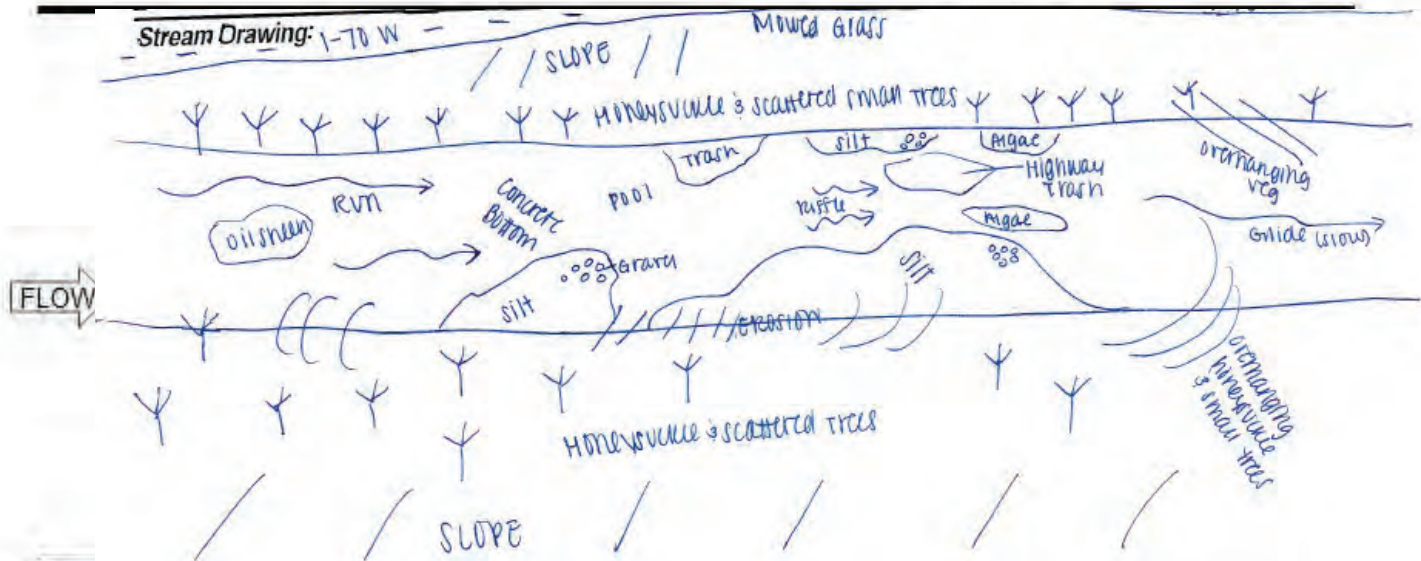 Stream Drawing: I-70 W
Mowed Grass
SLOPE
Honeysuckle & scattered small trees
Trash
Silt
Algae
Highway
Trash
overhanging
veg
RUN
Concrete
Bottom
POOL
riffle
Algae
Oil sheen
Glide (slow)
Gravel
Silt
Silt
FLOW
EROSION
overhanging
honeysuckle
& small trees
Honeysuckle & scattered trees
SLOPE